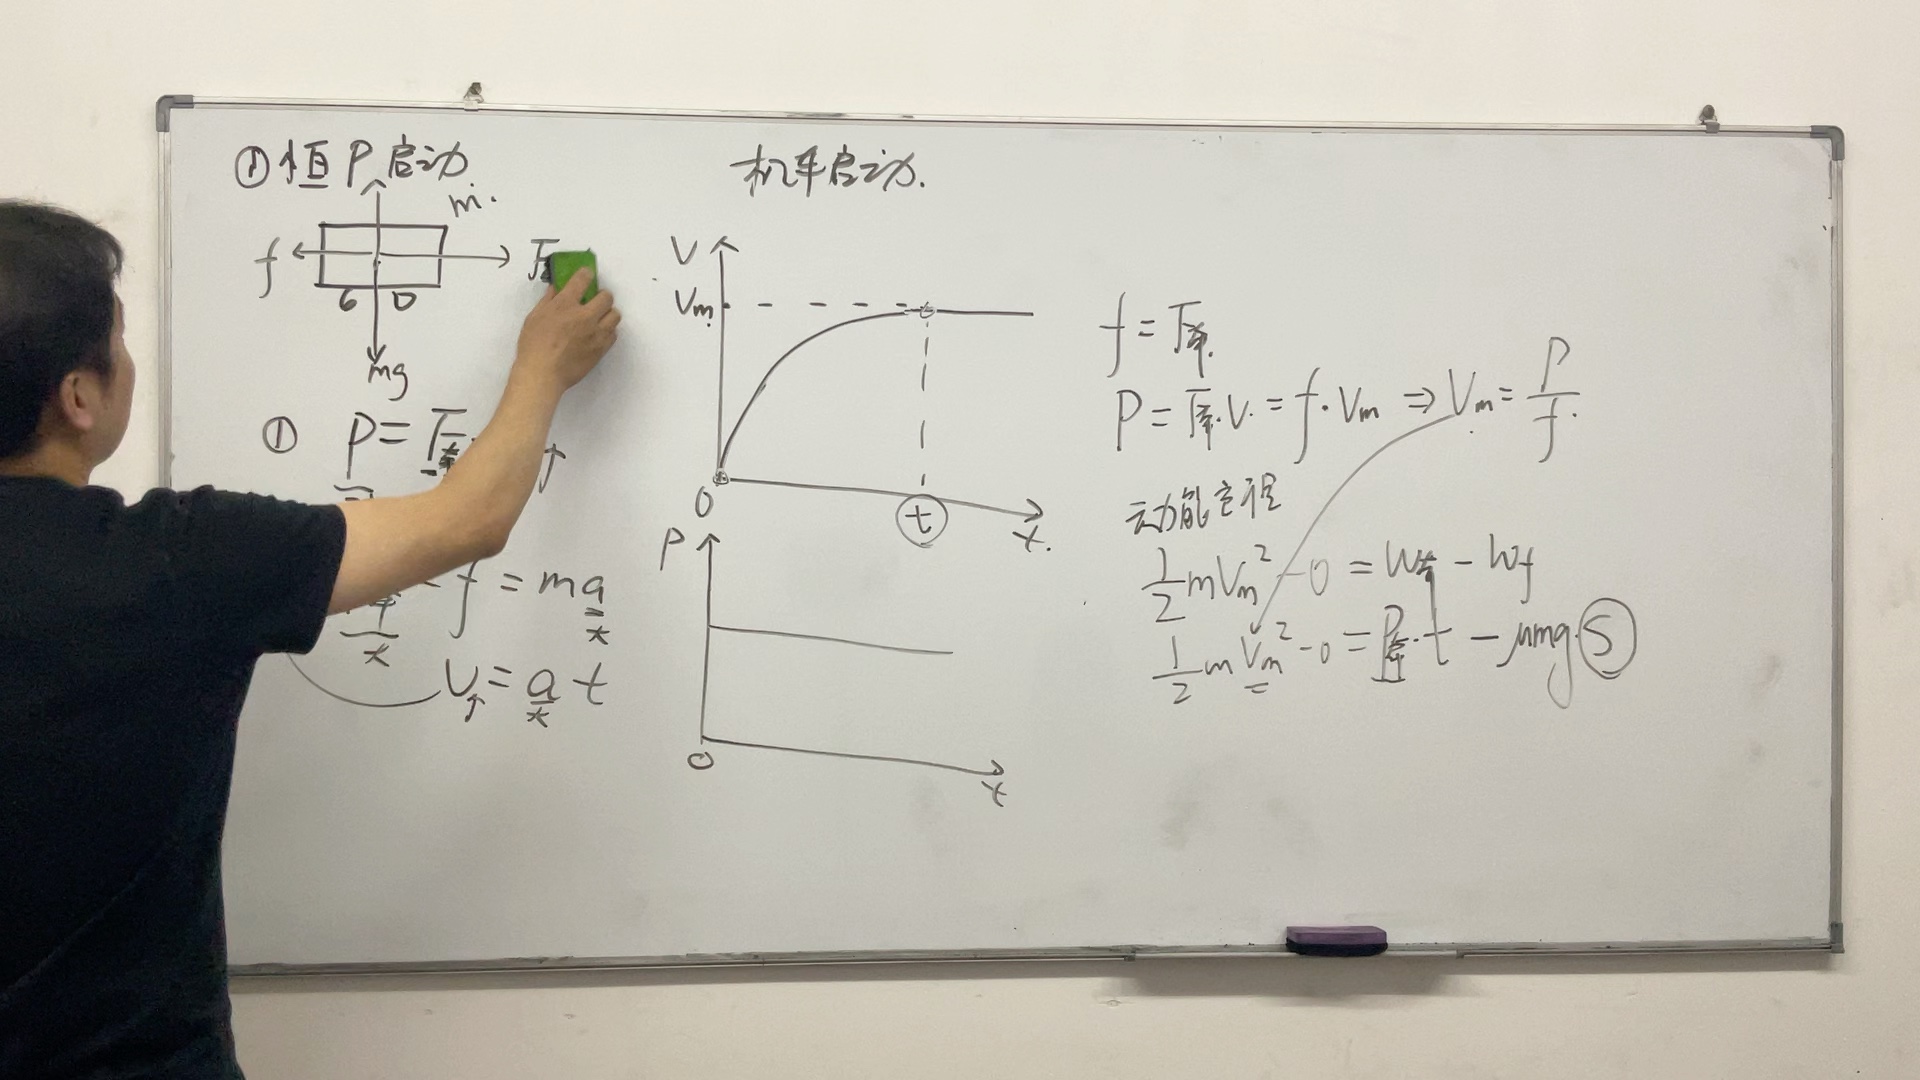 机车启动.
①恒P启动
m.
f
F
mg
① P=F牵
f = ma
v = a t
V
Vm
O
t
t.
P
O
t
f = F牵.
P = F牵·V. = f·Vm ⇒ Vm = P/f.
动能定程
1/2 mVm² - 0 = W牵 - Wf
1/2 mVm² - 0 = P牵·t - μmg·S